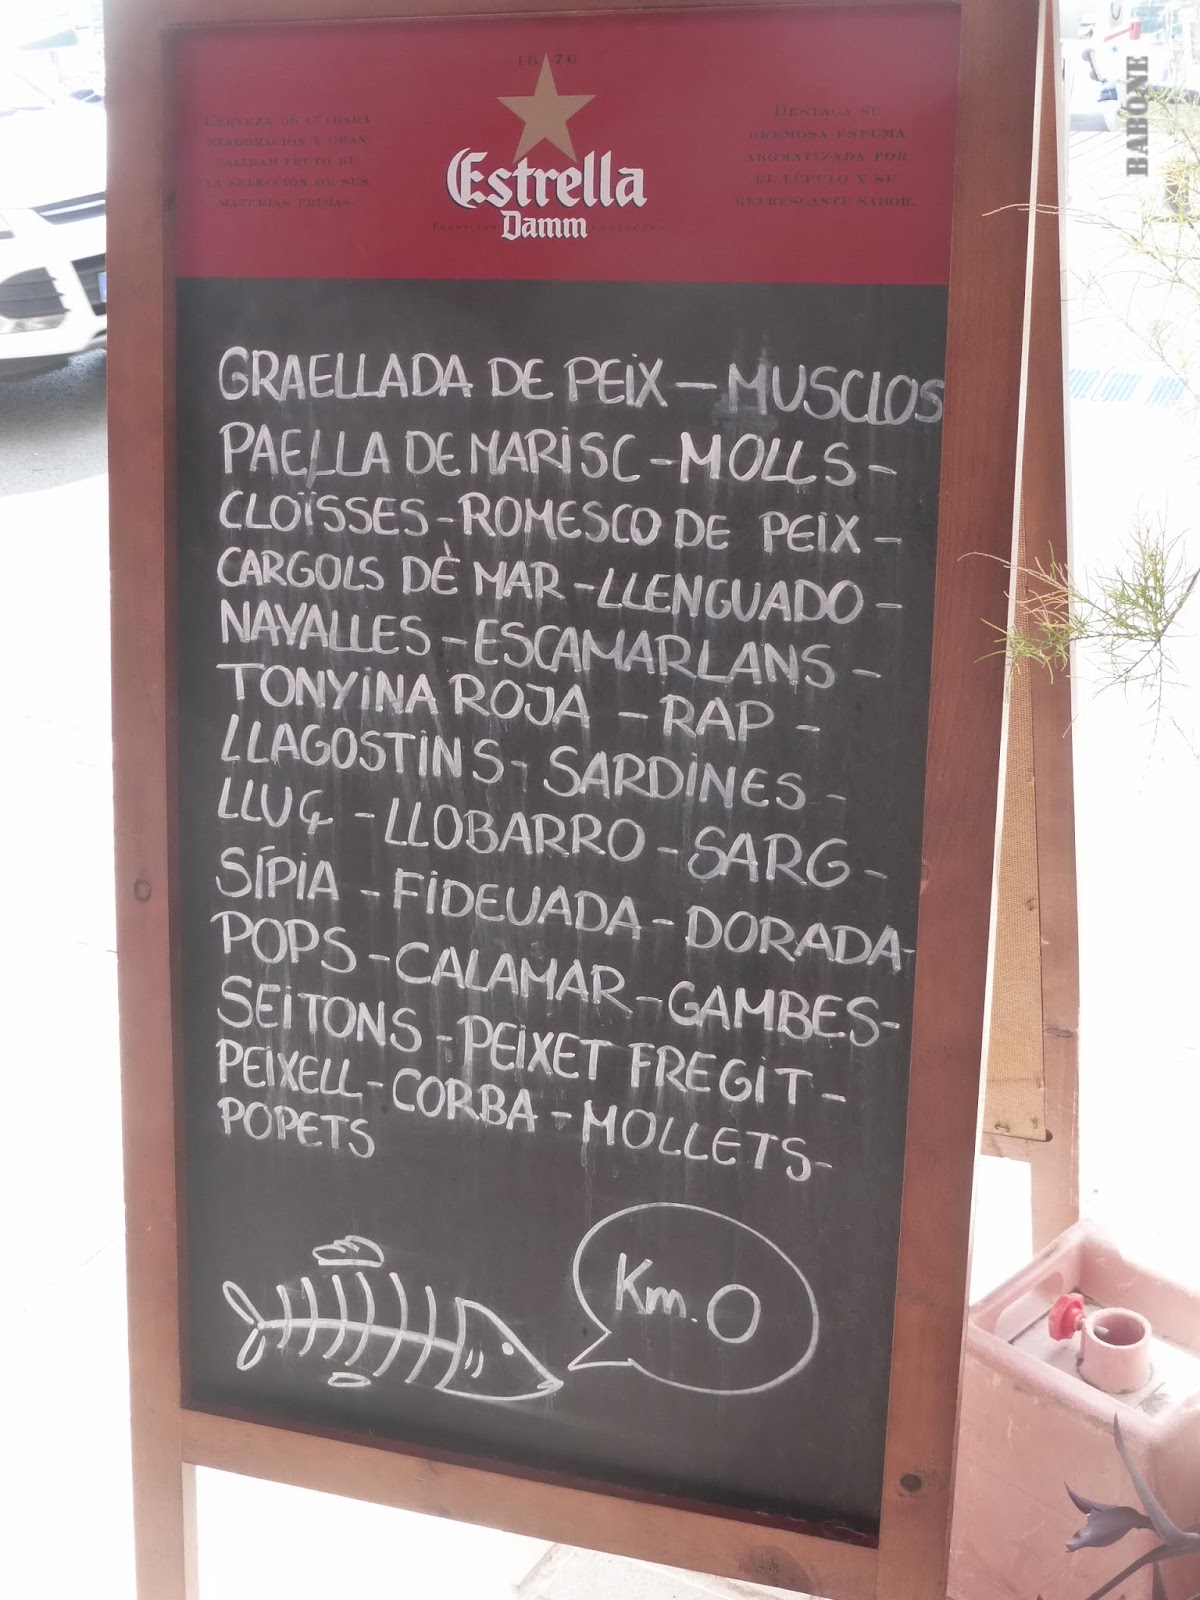 1876
CERVEZA DE CUIDADA
ELABORACIÓN Y GRAN
CALIDAD FRUTO DE
LA SELECCIÓN DE SUS
MATERIAS PRIMAS.
Estrella
Damm
TRADICIÓN CERVECERA
DESTACA SU
CREMOSA ESPUMA
AROMATIZADA POR
EL LÚPULO Y SU
REFRESCANTE SABOR.
BABONE
GRAELLADA DE PEIX - MUSCLOS
PAELLA DE MARISC - MOLLS -
CLOÏSSES - ROMESCO DE PEIX -
CARGOLS DÈ MAR - LLENGUADO -
NAVALLES - ESCAMARLANS -
TONYINA ROJA - RAP -
LLAGOSTINS - SARDINES -
LLUÇ - LLOBARRO - SARG -
SÍPIA - FIDEUADA - DORADA -
POPS - CALAMAR - GAMBES -
SEITONS - PEIXET FREGIT -
PEIXELL - CORBA - MOLLETS -
POPETS
Km. 0